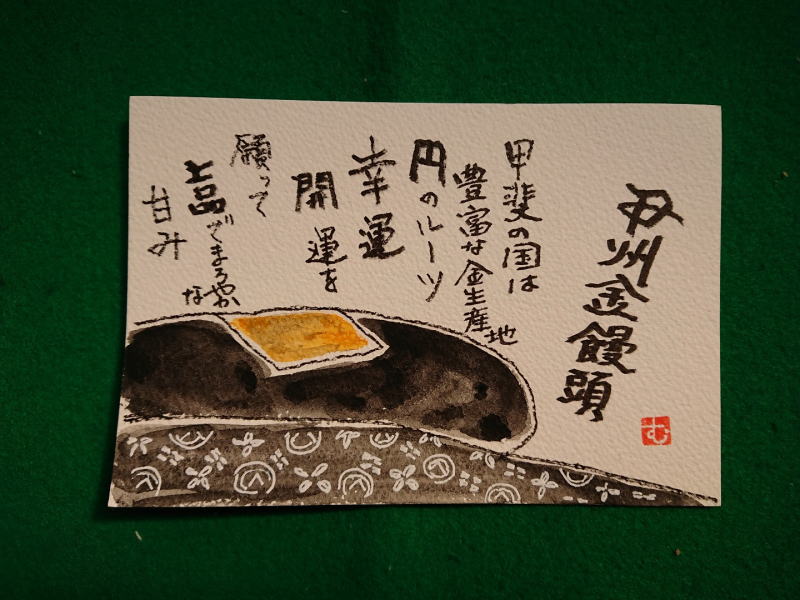 甲州金饅頭
む
甲斐の国は
豊富な金生産地
円のルーツ
幸運
開運を
願って
上品でまろやかな
甘み